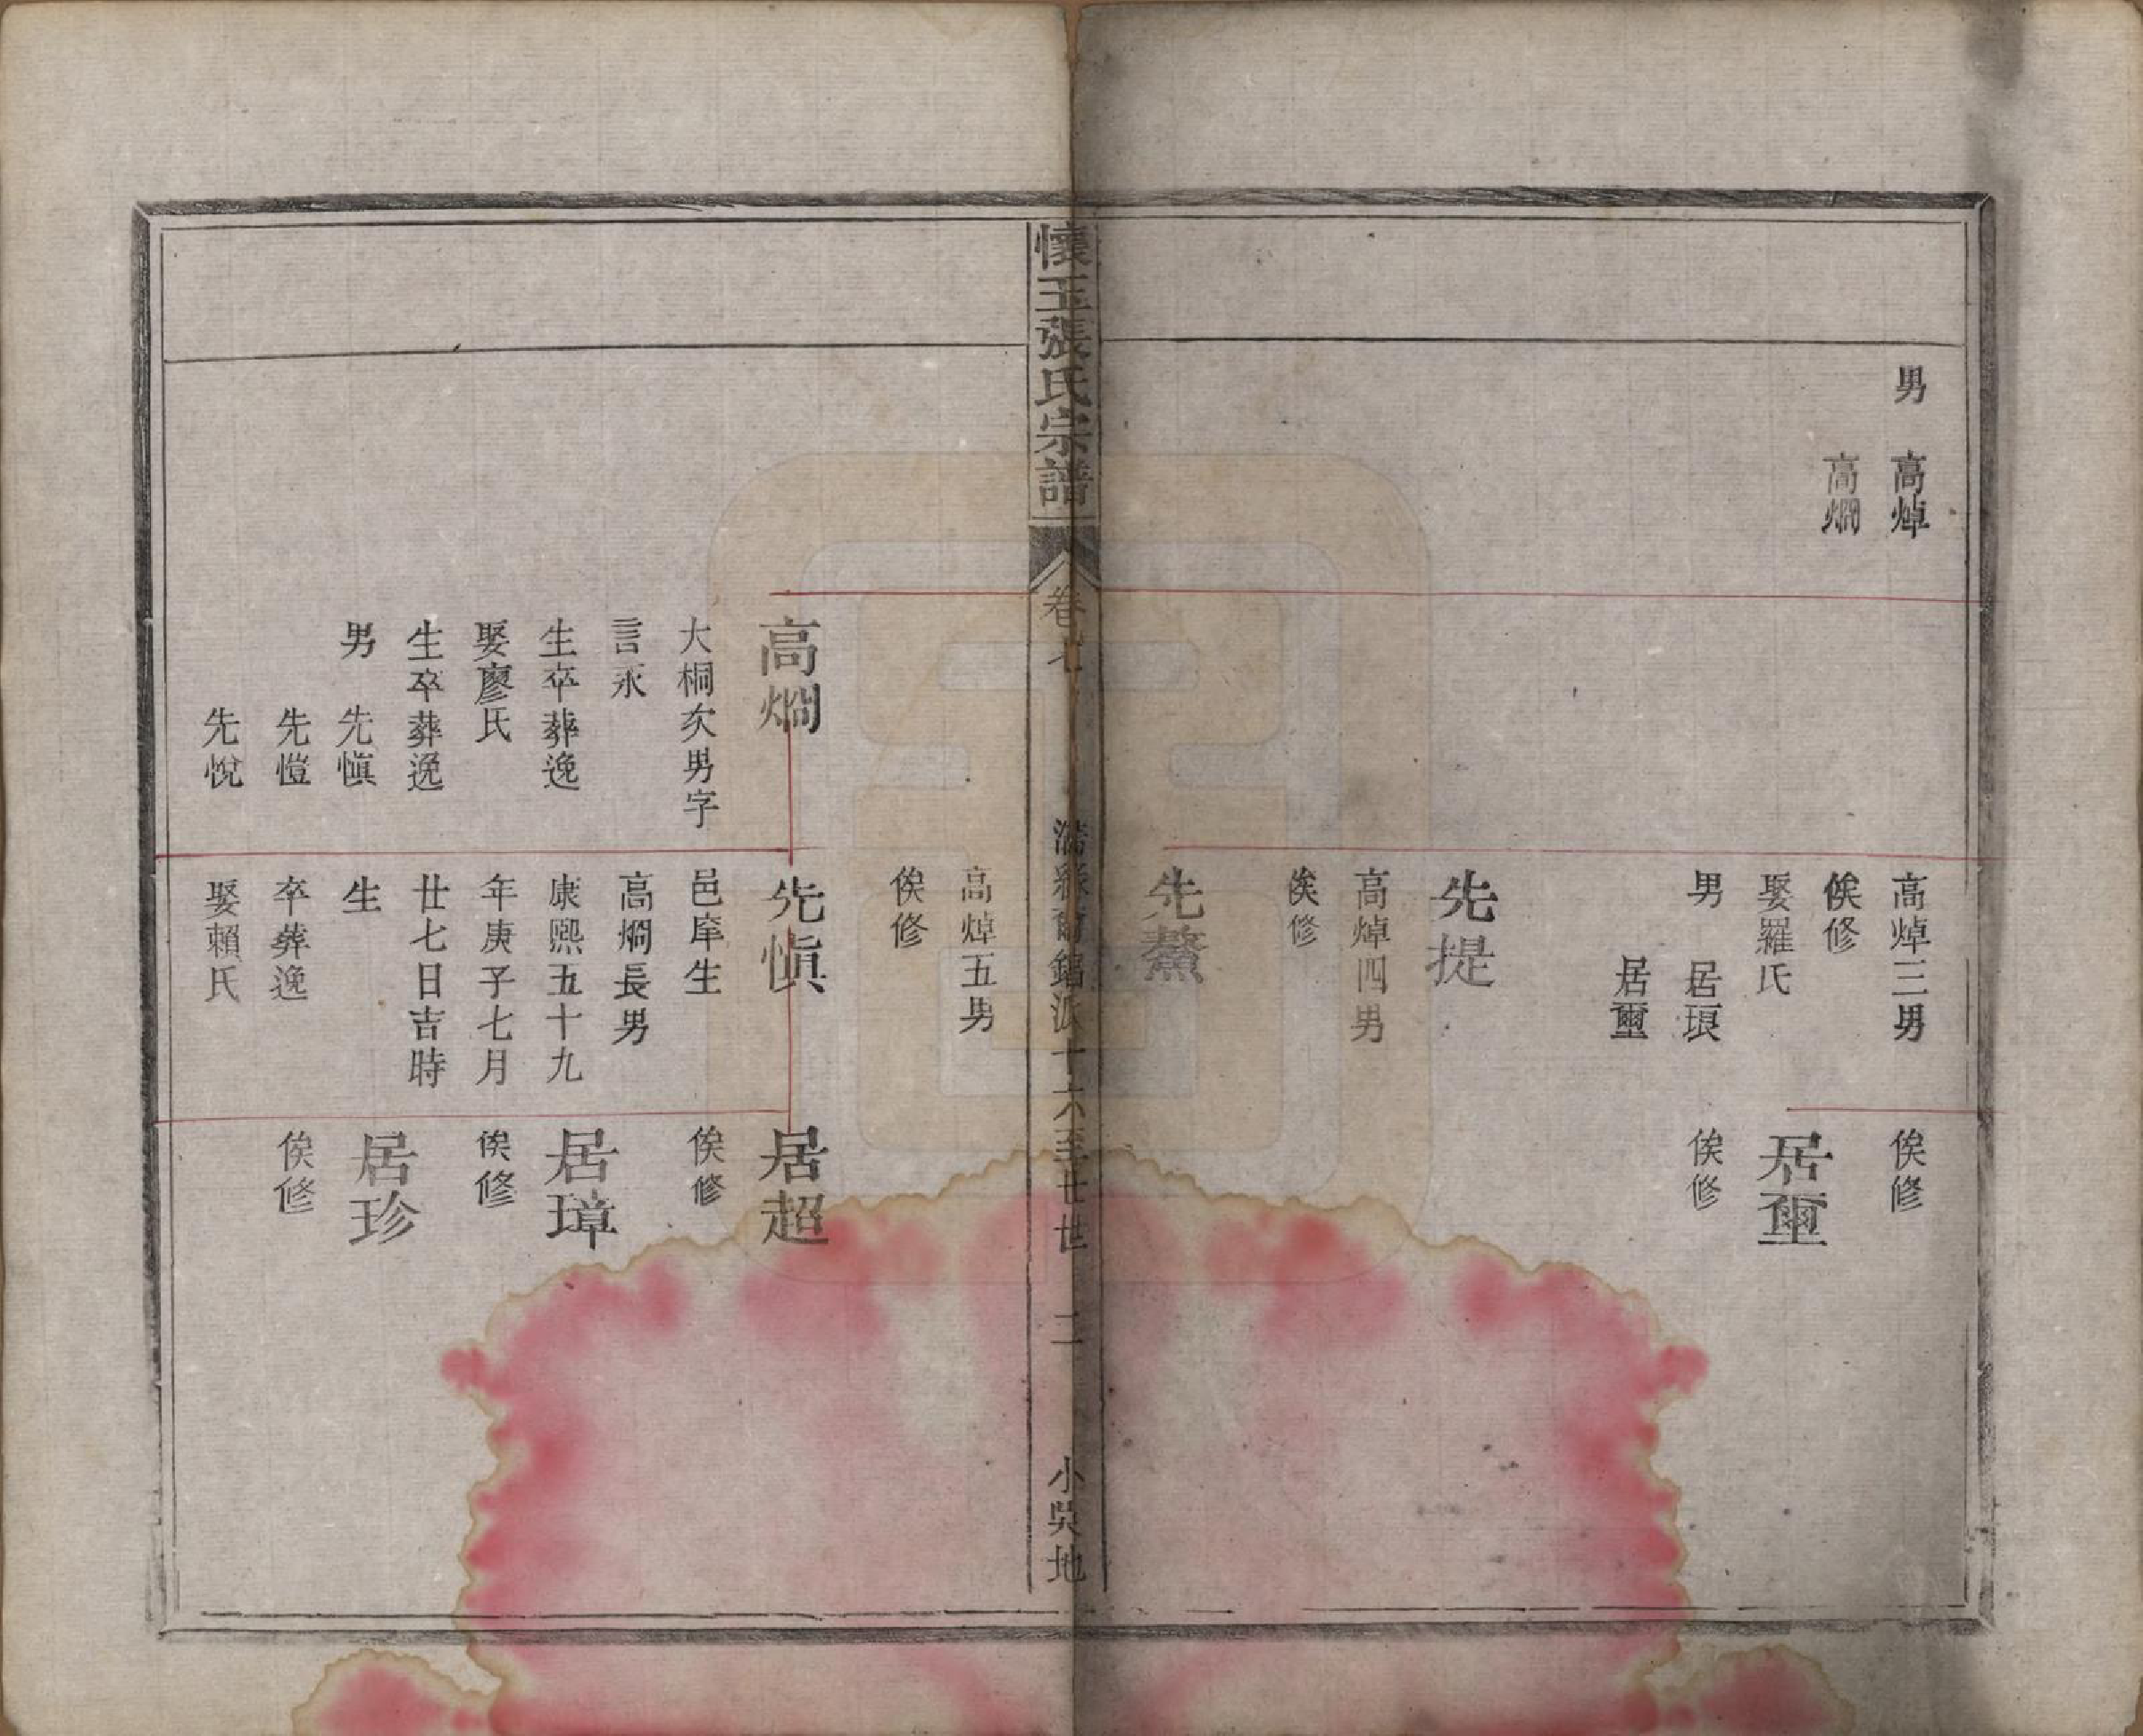 男 高焯
高燗
高焯三男
俟修
娶羅氏
男 居琅
居壐
俟修
居壐
俟修
先提
高焯四男
俟修
先鰲
懷玉張氏宗譜
卷七
十六至廿世
二
小吳地
高焯五男
俟修
高燗
大桐次男字
言永
生卒葬逸
娶廖氏
生卒葬逸
男 先愼
先愷
先悅
先愼
邑庠生
高燗長男
康熙五十九
年庚子七月
廿七日吉時
生
卒葬逸
娶賴氏
居超
俟修
居璋
俟修
居珍
俟修